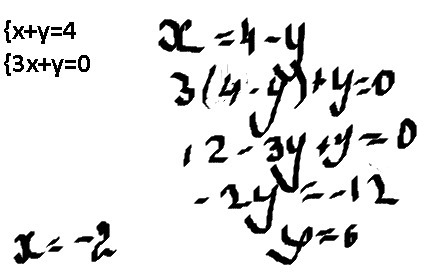 {x+y=4
{3x+y=0
x=4-y
3(4-y)+y=0
12-3y+y=0
-2y=-12
y=6
x=-2